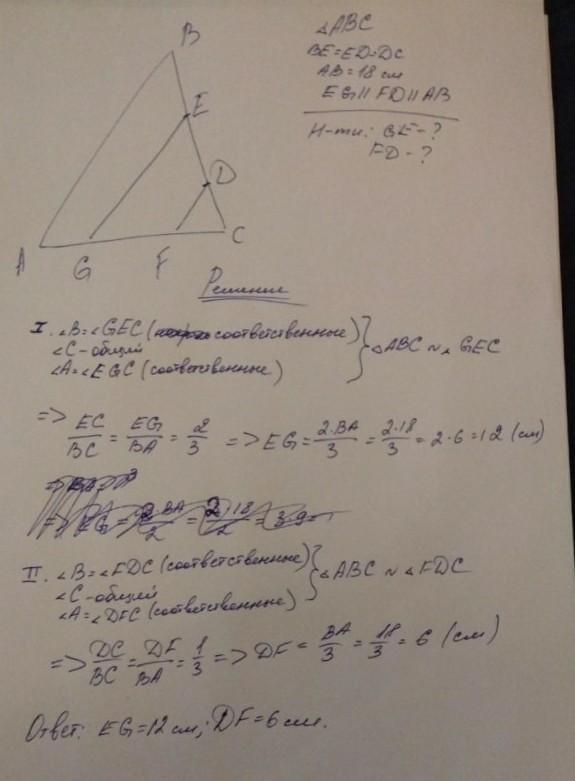 △ABC
BE=ED=DC
AB=18 см
EG || FD || AB
Н-ти: GE-?
FD-?
B
E
D
A G F C
Решение
I. ∠B=∠GEC ( соответственные)
∠C-общий
∠A=∠EGC (соответственные)
} △ABC ~ △GEC
=> EC/BC = EG/BA = 2/3 => EG = 2·BA/3 = 2·18/3 = 2·6=12 (см)
II. ∠B=∠FDC (соответственные)
∠C-общий
∠A=∠DFC (соответственные)
} △ABC ~ △FDC
=> DC/BC = DF/BA = 1/3 => DF = BA/3 = 18/3 = 6 (см)
Ответ: EG=12 см; DF=6 см.